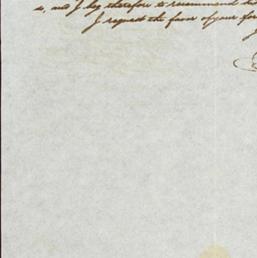 is, and I beg therefore to recommend
I request the favor of your